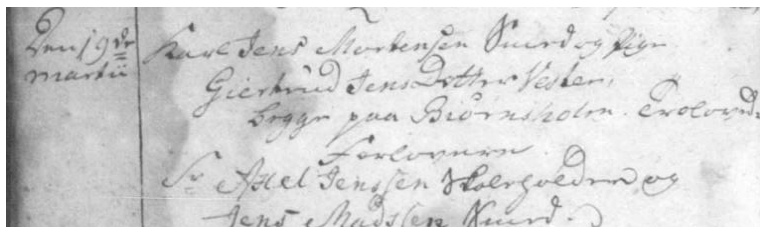 Den 19de Karl Jens Mortensen Smed og Pige
martii Giertrud Jens Dotter Vester,
begge paa Biörnsholm. Trolovede
Forlovere
Sr Axel Jenssen Skoleholder og
Jens Madssen Smed.